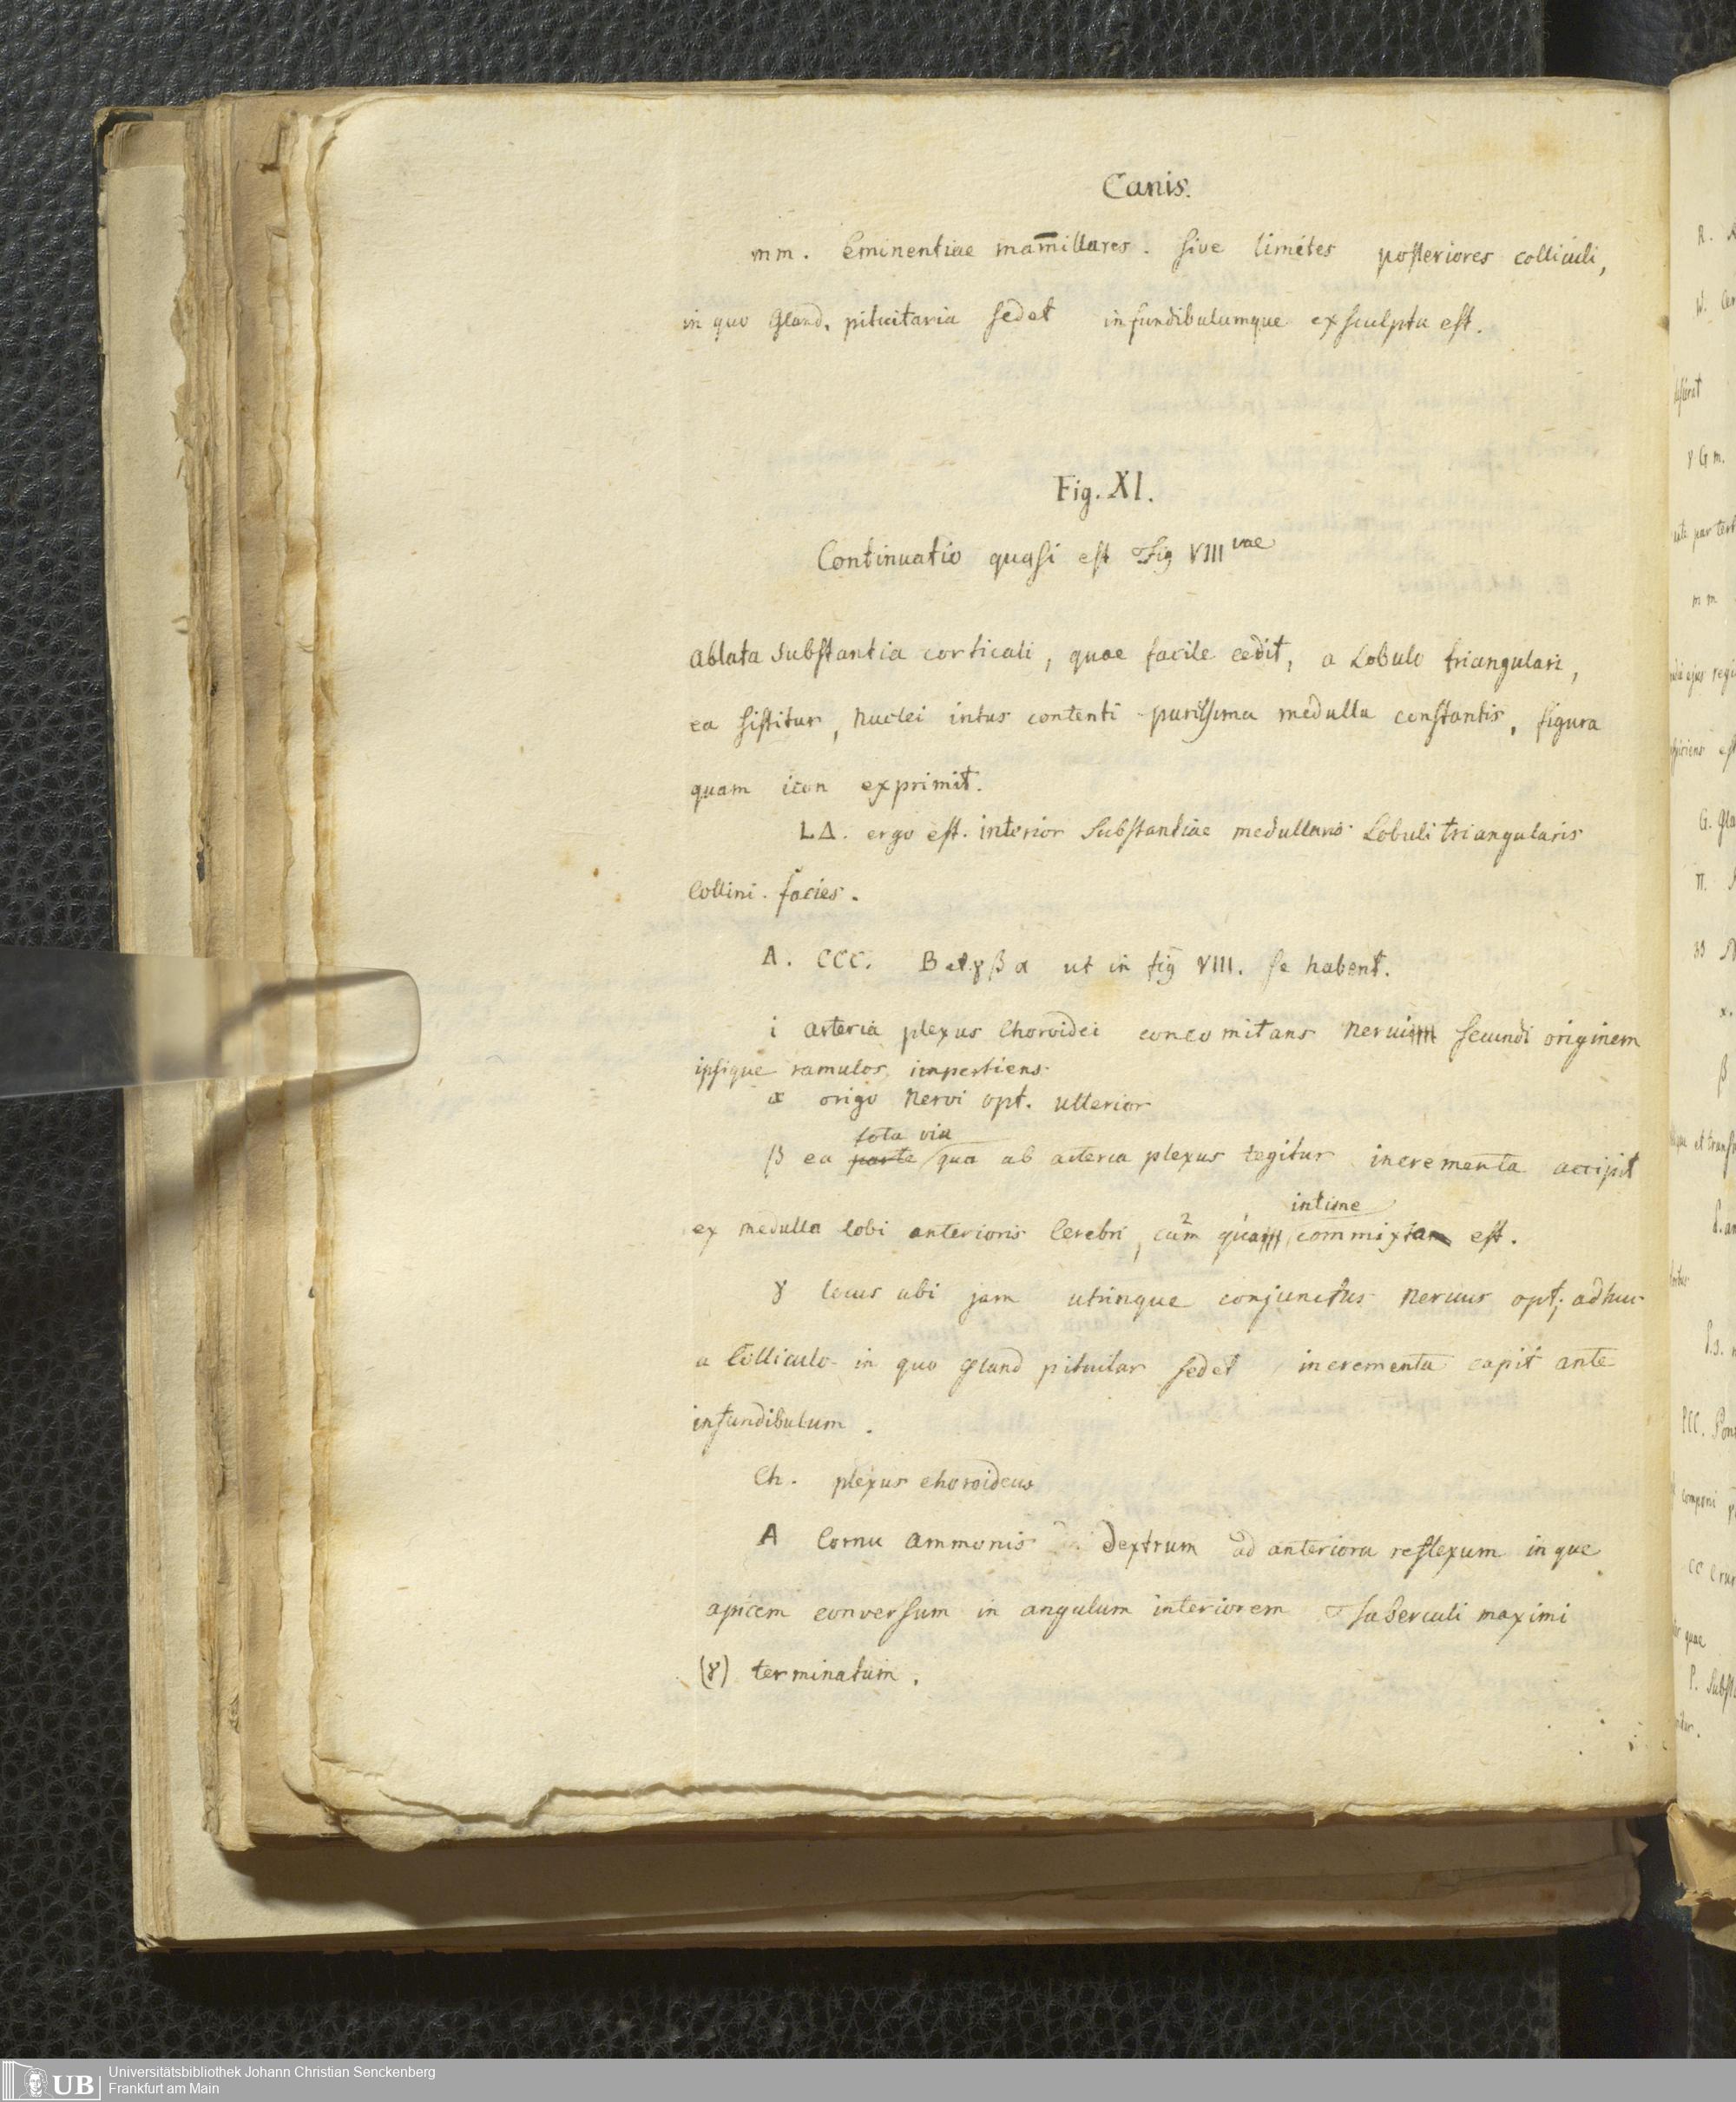 Canis.
mm. Eminentiae mam̅illares. sive limites posteriores colliculi,
in quo Gland. pituitaria sedet infundibulumque exsculptu est.
Fig. XI.
Continuatio quasi est Fig VIII vae
Ablata substantia corticali, quae facile cedit, a Lobulo triangulari,
ea sistitur, nuclei intus contenti purissima medulla constantis, figura
quam icon exprimit.
LΔ. ergo est. interior substantiae medullaris Lobuli triangularis
Collini. facies.
A. CCC. B et γ β α ut in fig VIII. se habent.
i arteria plexus Choroidei concomitans nervi secundi originem
ipsique ramulos impertiens.
α origo Nervi opt. ulterior
tota via
β ea parte qua ab arteria plexus tegitur incrementa accipit
intime
ex medulla lobi anterioris Cerebri, cum 2 qua 1 commixta est.
γ locus ubi jam utrinque conjunctus nervus opt; adhuc
a Colliculo in quo gland pituitar sedet incrementa capit ante
infundibulum.
Ch. plexus choroideus
A Cornu Ammonis dextrum ad anteriora reflexum inque
apicem conversum in angulum interiorem Tuberculi maximi
(γ) terminatum.
R.
W.
γ G m.
m m
G. Gla
π.
x.
β
PCC. Pon
componi
CC Crur
quae
P. Subst
UB
Universitätsbibliothek Johann Christian Senckenberg
Frankfurt am Main